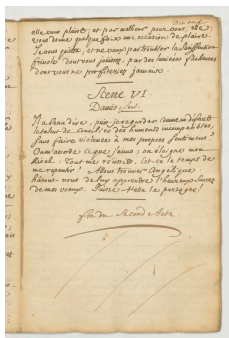 elle vous plaire, et par malheur pour vous, elle
vous donne quelque fois une occasion de plaire.
Je vous quitte, et ne veux pas troubler la satisfaction
frivole dont vous jouissez, par des lumieres fâcheuses
dont vous ne profiteriez jamais.
Scene VI
Damis seul
Il a beau dire, puis-je regarder comme un défaut
le talent de concilier des humeurs incompatibles,
sans faire violence à mes propres sentimens?
On m'accorde ce que j'aime; on éloigne mon
Rival; Tout me réussit, est-ce le temps de
me repentir? Allons trouver Angelique
hâtons-nous de luy apprendre l'heureux succez
de mes voeux. Puisse-t-elle les partager!
fin du Second Acte.